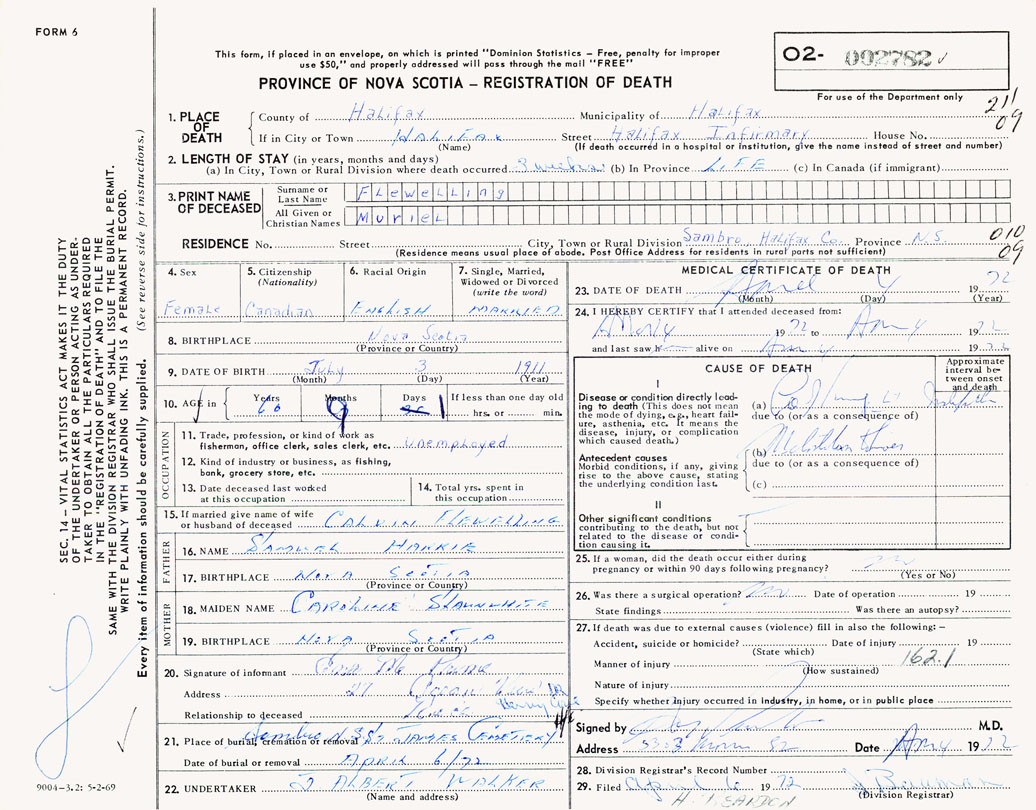 FORM 6
This form, if placed in an envelope, on which is printed "Dominion Statistics – Free, penalty for improper
use $50," and properly addressed will pass through the mail "FREE"
PROVINCE OF NOVA SCOTIA – REGISTRATION OF DEATH
02- 002782
For use of the Department only
211
09
1. PLACE OF DEATH
County of Halifax Municipality of Halifax
If in City or Town HALIFAX Street Halifax Infirmary House No.
(Name) (If death occurred in a hospital or institution, give the name instead of street and number)
2. LENGTH OF STAY (in years, months and days)
(a) In City, Town or Rural Division where death occurred 3 weeks (b) In Province LIFE (c) In Canada (if immigrant)
3. PRINT NAME OF DECEASED
Surname or Last Name Flewelling
All Given or Christian Names Muriel
RESIDENCE No. Street City, Town or Rural Division Sambro, Halifax Co. Province N.S.
(Residence means usual place of abode. Post Office Address for residents in rural parts not sufficient)
010
09
4. Sex
Female
5. Citizenship
(Nationality)
Canadian
6. Racial Origin
ENGLISH
7. Single, Married,
Widowed or Divorced
(write the word)
MARRIED
8. BIRTHPLACE Nova Scotia
(Province or Country)
9. DATE OF BIRTH July 3 1911
(Month) (Day) (Year)
10. AGE in Years 60 Months 9 Days 1 If less than one day old
hrs. or min.
OCCUPATION
11. Trade, profession, or kind of work as
fisherman, office clerk, sales clerk, etc. unemployed
12. Kind of industry or business, as fishing,
bank, grocery store, etc.
13. Date deceased last worked
at this occupation
14. Total yrs. spent in
this occupation
15. If married give name of wife
or husband of deceased CALVIN FLEWELLING
FATHER
16. NAME SAMUEL
17. BIRTHPLACE NOVA SCOTIA
(Province or Country)
MOTHER
18. MAIDEN NAME CAROLINE
19. BIRTHPLACE NOVA SCOTIA
(Province or Country)
20. Signature of informant
Address 27 Ocean
Relationship to deceased
21. Place of burial, cremation or removal Sambro N.S. St JAMES CEMETERY
Date of burial or removal APRIL 6/72
22. UNDERTAKER J ALBERT WALKER
(Name and address)
MEDICAL CERTIFICATE OF DEATH
23. DATE OF DEATH April 4 1972
(Month) (Day) (Year)
24. I HEREBY CERTIFY that I attended deceased from:
1972 to 1972
and last saw alive on 1972
CAUSE OF DEATH
Approximate
interval be-
tween onset
and death
I
Disease or condition directly lead-
ing to death (This does not mean
the mode of dying, e.g., heart fail-
ure, asthenia, etc. It means the
disease, injury, or complication
which caused death.)
(a)
due to (or as a consequence of)
Antecedent causes
Morbid conditions, if any, giving
rise to the above cause, stating
the underlying condition last.
(b)
due to (or as a consequence of)
(c)
II
Other significant conditions
contributing to the death, but not
related to the disease or condi-
tion causing it.
25. If a woman, did the death occur either during
pregnancy or within 90 days following pregnancy? no
(Yes or No)
26. Was there a surgical operation? no Date of operation 19
State findings Was there an autopsy?
27. If death was due to external causes (violence) fill in also the following: –
Accident, suicide or homicide? Date of injury 19
(State which)
162.1
Manner of injury
(How sustained)
Nature of injury
Specify whether Injury occurred in industry, in home, or in public place
Signed by M.D.
Address Date 1972
28. Division Registrar's Record Number
29. Filed April 6 1972
(Division Registrar)
SEC. 14 – VITAL STATISTICS ACT MAKES IT THE DUTY
OF THE UNDERTAKER OR PERSON ACTING AS UNDER-
TAKER TO OBTAIN ALL THE PARTICULARS REQUIRED
IN THE "REGISTRATION OF DEATH" AND TO FILE THE
SAME WITH THE DIVISION REGISTRAR WHO SHALL ISSUE THE BURIAL PERMIT.
WRITE PLAINLY WITH UNFADING INK. THIS IS A PERMANENT RECORD.
Every item of information should be carefully supplied. (See reverse side for instructions.)
9004-3.2: 5-2-69